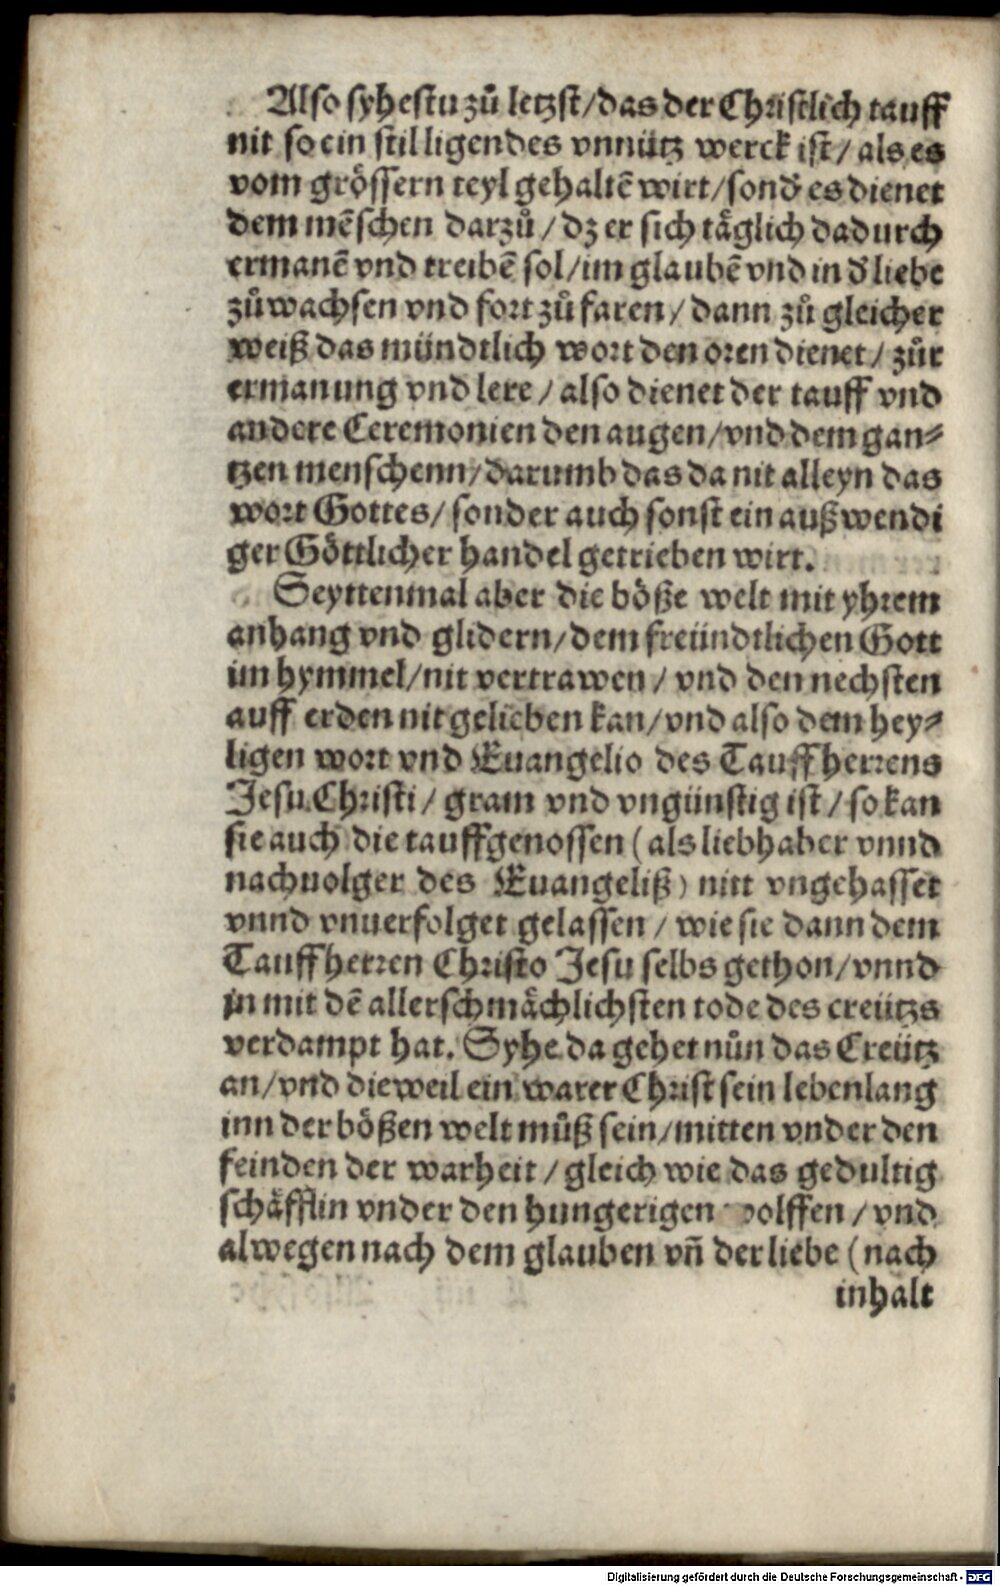 Also syhestu zů letzst/das der Christlich tauff
nit so ein stil ligendes vnnütz werck ist/ als es
vom grössern teyl gehaltē wirt/sond' es dienet
dem mēschen darzů/ dz er sich täglich dadurch
ermanē vnd treibē sol/im glaubē vnd in d' liebe
zůwachsen vnd fort zů faren/ dann zů gleicher
weiß das mündtlich wort den oren dienet/ zůr
ermanung vnd lere/ also dienet der tauff vnd
andere Ceremonien den augen/vnd dem gan⸗
tzen menschenn/darumb das da nit alleyn das
wort Gottes/ sonder auch sonst ein außwendi
ger Göttlicher handel getrieben wirt.
Seyttenmal aber die böße welt mit yhrem
anhang vnd glidern/dem freündtlichen Gott
im hymmel/nit vertrawen/ vnd den nechsten
auff erden nit gelieben kan/vnd also dem hey⸗
ligen wort vnd Euangelio des Tauffherrens
Jesu Christi/ gram vnd vngünstig ist/ so kan
sie auch die tauffgenossen (als liebhaber vnnd
nachuolger des Euangeliß) nitt vngehasset
vnnd vnuerfolget gelassen/ wie sie dann dem
Tauffherren Christo Jesu selbs gethon/vnnd
jn mit dē allerschmächlichsten tode des creützs
verdampt hat. Syhe da gehet nůn das Creütz
an/vnd dieweil ein warer Christ sein lebenlang
inn der bößen welt můß sein/mitten vnder den
feinden der warheit/ gleich wie das gedultig
schäfflin vnder den hungerigen wolffen/ vnd
alwegen nach dem glauben vñ der liebe (nach
inhalt
Digitalisierung gefördert durch die Deutsche Forschungsgemeinschaft - DFG